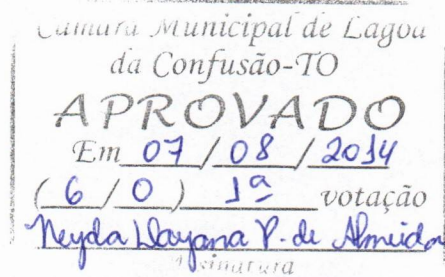 Câmara Municipal de Lagoa
da Confusão-TO
APROVADO
Em 07 / 08 / 2014
( 6 / 0 ) 1ª votação
Neyda Dayana P. de Almeida
Assinatura